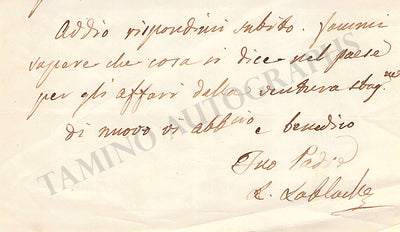 Addio rispondimi subito. fammi
sapere che cosa si dice nel paese
per gli affari della ventura stag.ne
di nuovo vi abbraio e benedico
Tuo Padre
L. Lablache
TAMINO AUTOGRAPHS